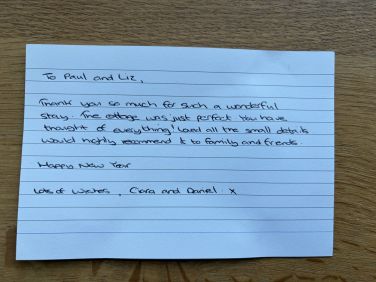 To Paul and Liz,
Thank you so much for such a wonderful
stay. The cottage was just perfect. You have
thought of everything! Loved all the small details
would highly recommend it to family and friends.
Happy New Year
Lots of wishes, Ciara and Daniel x